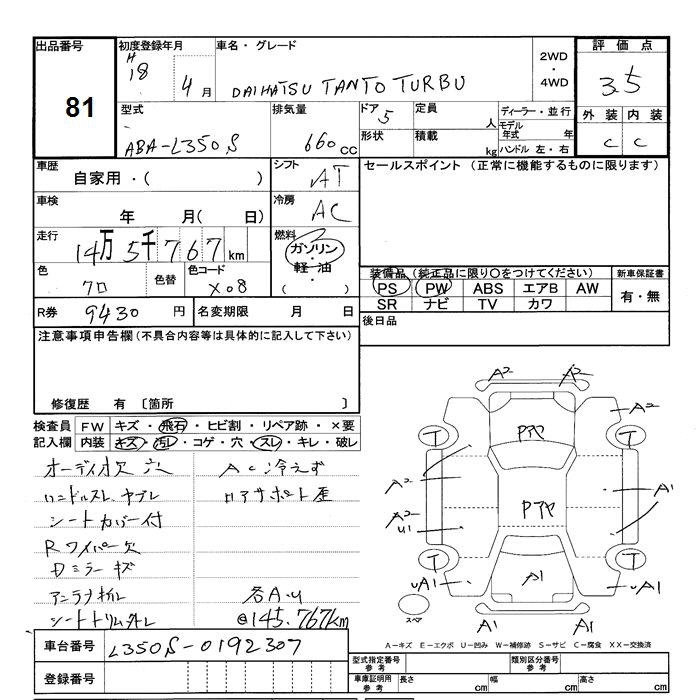 出品番号
81
初度登録年月
H18 4月
車名・グレード
DAIHATSU TANTO TURBU
2WD
・
4WD
評価点
3.5
外装 内装
C C
型式
ABA-L350S
排気量
660cc
ドア 5
定員 人
ディーラー・並行
形状
積載 kg
モデル年式 年
ハンドル 左・右
車歴
自家用・( )
シフト
AT
セールスポイント (正常に機能するものに限ります)
車検
年 月( 日)
冷房
AC
走行
14万5千767km
燃料
ガソリン
・
軽油
( )
色
クロ
色替
色コード
X08
装備品(純正品に限り○をつけてください)
PS PW ABS エアB AW
SR ナビ TV カワ
新車保証書
有・無
R券 9430円
名変期限 月 日
後日品
注意事項申告欄(不具合内容等は具体的に記入して下さい)
修復歴 有 〔箇所 〕
検査員記入欄
FW キズ・飛石・ヒビ割・リペア跡・×要
内装 キズ・汚レ・コゲ・穴・スレ・キレ・破レ
オーディオ欠 穴
ハンドルスレ、ヤブレ
シートカバー付
Rワイパー欠
Dミラーキズ
アンテナ折レ
シートトリム外レ
AC冷えず
各A.U
@145.767km
A2 A2
A2
T T
A2
A2
U1
A1
T T
A1
A1
A1 A1
スペア
A-キズ E-エクボ U-凹み W-補修跡 S-サビ C-腐食 XX-交換済
車台番号 L350S-0192307
登録番号
型式指定番号 参考
類別区分番号 参考
車庫証明用 参考
長さ cm
幅 cm
高さ cm